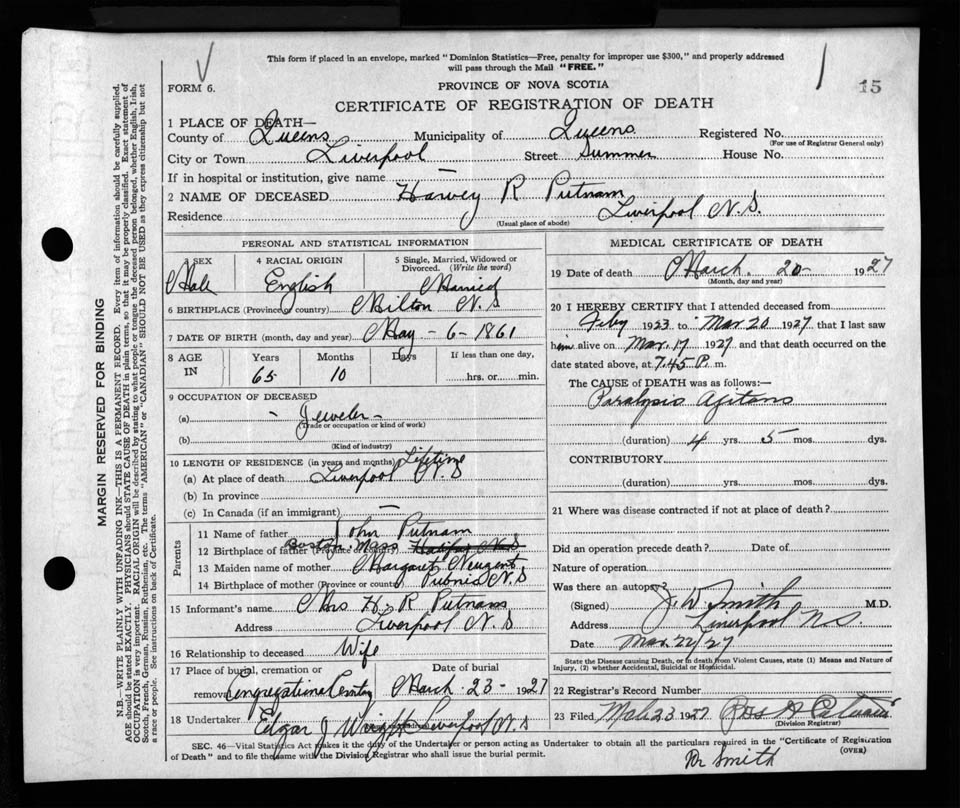 This form if placed in an envelope, marked "Dominion Statistics—Free, penalty for improper use $300," and properly addressed
will pass through the Mail "FREE."
FORM 6.
PROVINCE OF NOVA SCOTIA
15
CERTIFICATE OF REGISTRATION OF DEATH
1 PLACE OF DEATH—
County of Queens Municipality of Queens Registered No.
(For use of Registrar General only)
City or Town Liverpool Street Summer House No.
If in hospital or institution, give name —
2 NAME OF DECEASED Harvey R Putnam
Residence Liverpool N.S.
(Usual place of abode)
PERSONAL AND STATISTICAL INFORMATION
3 SEX 4 RACIAL ORIGIN 5 Single, Married, Widowed or
Divorced. (Write the word)
Male English Married
6 BIRTHPLACE (Province or country) Milton N.S
7 DATE OF BIRTH (month, day and year) May - 6 - 1861
8 AGE IN Years Months Days If less than one day,
65 10 hrs. or min.
9 OCCUPATION OF DECEASED
(a) - Jeweler -
(Trade or occupation or kind of work)
(b)
(Kind of industry)
10 LENGTH OF RESIDENCE (in years and months) Lifetime
(a) At place of death Liverpool N.S
(b) In province
(c) In Canada (if an immigrant) —
Parents
11 Name of father John Putnam
12 Birthplace of father (Province or country) Boston Mass Halifax N.S
13 Maiden name of mother Margaret Neugent
14 Birthplace of mother (Province or country) N.S
15 Informant's name Mrs H. R Putnam
Address Liverpool N.S
16 Relationship to deceased Wife
17 Place of burial, cremation or Date of burial
removal March 23 - 1927
18 Undertaker Edgar J Wright Liverpool N.S
MEDICAL CERTIFICATE OF DEATH
19 Date of death March 20 - 1927
(Month, day and year)
20 I HEREBY CERTIFY that I attended deceased from
Feby 1923 to Mar 20 1927 that I last saw
him alive on Mar. 17 1927 and that death occurred on the
date stated above, at 7.45 P. m.
The CAUSE OF DEATH was as follows:—
Paralysis Agitans
(duration) 4 yrs. 5 mos. dys.
CONTRIBUTORY
(duration) yrs. mos. dys.
21 Where was disease contracted if not at place of death?
Did an operation precede death? Date of
Nature of operation
Was there an autopsy?
(Signed) J. W Smith M.D.
Address Liverpool N.S.
Date Mar 22/27
State the Disease causing Death, or in death from Violent Causes, state (1) Means and Nature of
Injury, (2) whether Accidental, Suicidal or Homicidal.
22 Registrar's Record Number
23 Filed Mch 23 1927
(Division Registrar)
SEC. 46—Vital Statistics Act makes it the duty of the Undertaker or person acting as Undertaker to obtain all the particulars required in the "Certificate of Registration
of Death" and to file the same with the Division Registrar who shall issue the burial permit.
(OVER)
Dr Smith
MARGIN RESERVED FOR BINDING
N.B.—WRITE PLAINLY WITH UNFADING INK—THIS IS A PERMANENT RECORD. Every item of information should be carefully supplied.
AGE should be stated EXACTLY. PHYSICIANS should STATE CAUSE OF DEATH in plain terms, so that it may be properly classified. Exact statement of
OCCUPATION is very important. RACIAL ORIGIN will be described by stating to what people or tongue the deceased person belonged, whether English, Irish,
Scotch, French, German, Russian, Ruthenian, etc. The terms "AMERICAN" or "CANADIAN" SHOULD NOT BE USED as they express citizenship but not
a race or people. See instructions on back of Certificate.